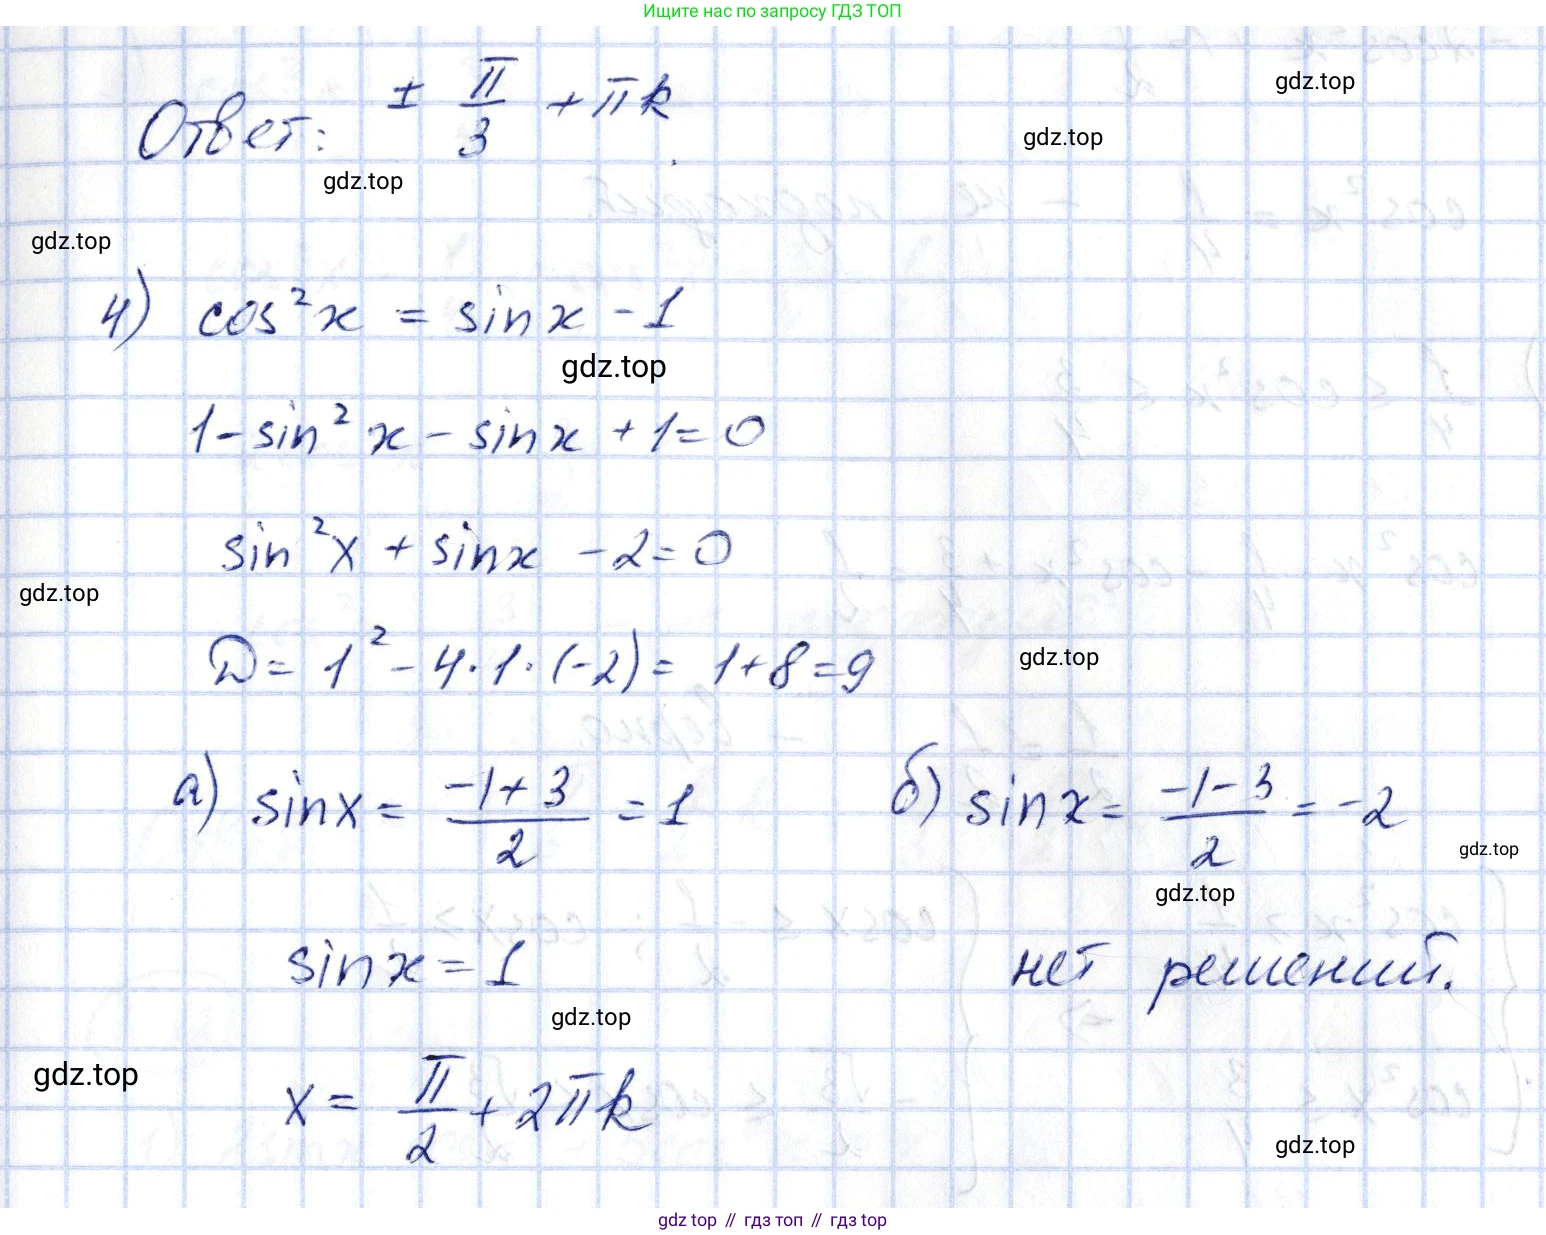 Ищите нас по запросу ГДЗ ТОП
gdz.top
Ответ: ± π/3 + πk.
gdz.top
gdz.top
gdz.top
4) cos²x = sinx - 1
gdz.top
1 - sin²x - sinx + 1 = 0
sin²x + sinx - 2 = 0
gdz.top
D = 1² - 4·1·(-2) = 1 + 8 = 9
gdz.top
а) sinx = (-1+3)/2 = 1 б) sinx = (-1-3)/2 = -2
gdz.top
gdz.top
sinx = 1 нет решений.
gdz.top
gdz.top
x = π/2 + 2πk
gdz.top
gdz top // гдз топ // gdz top